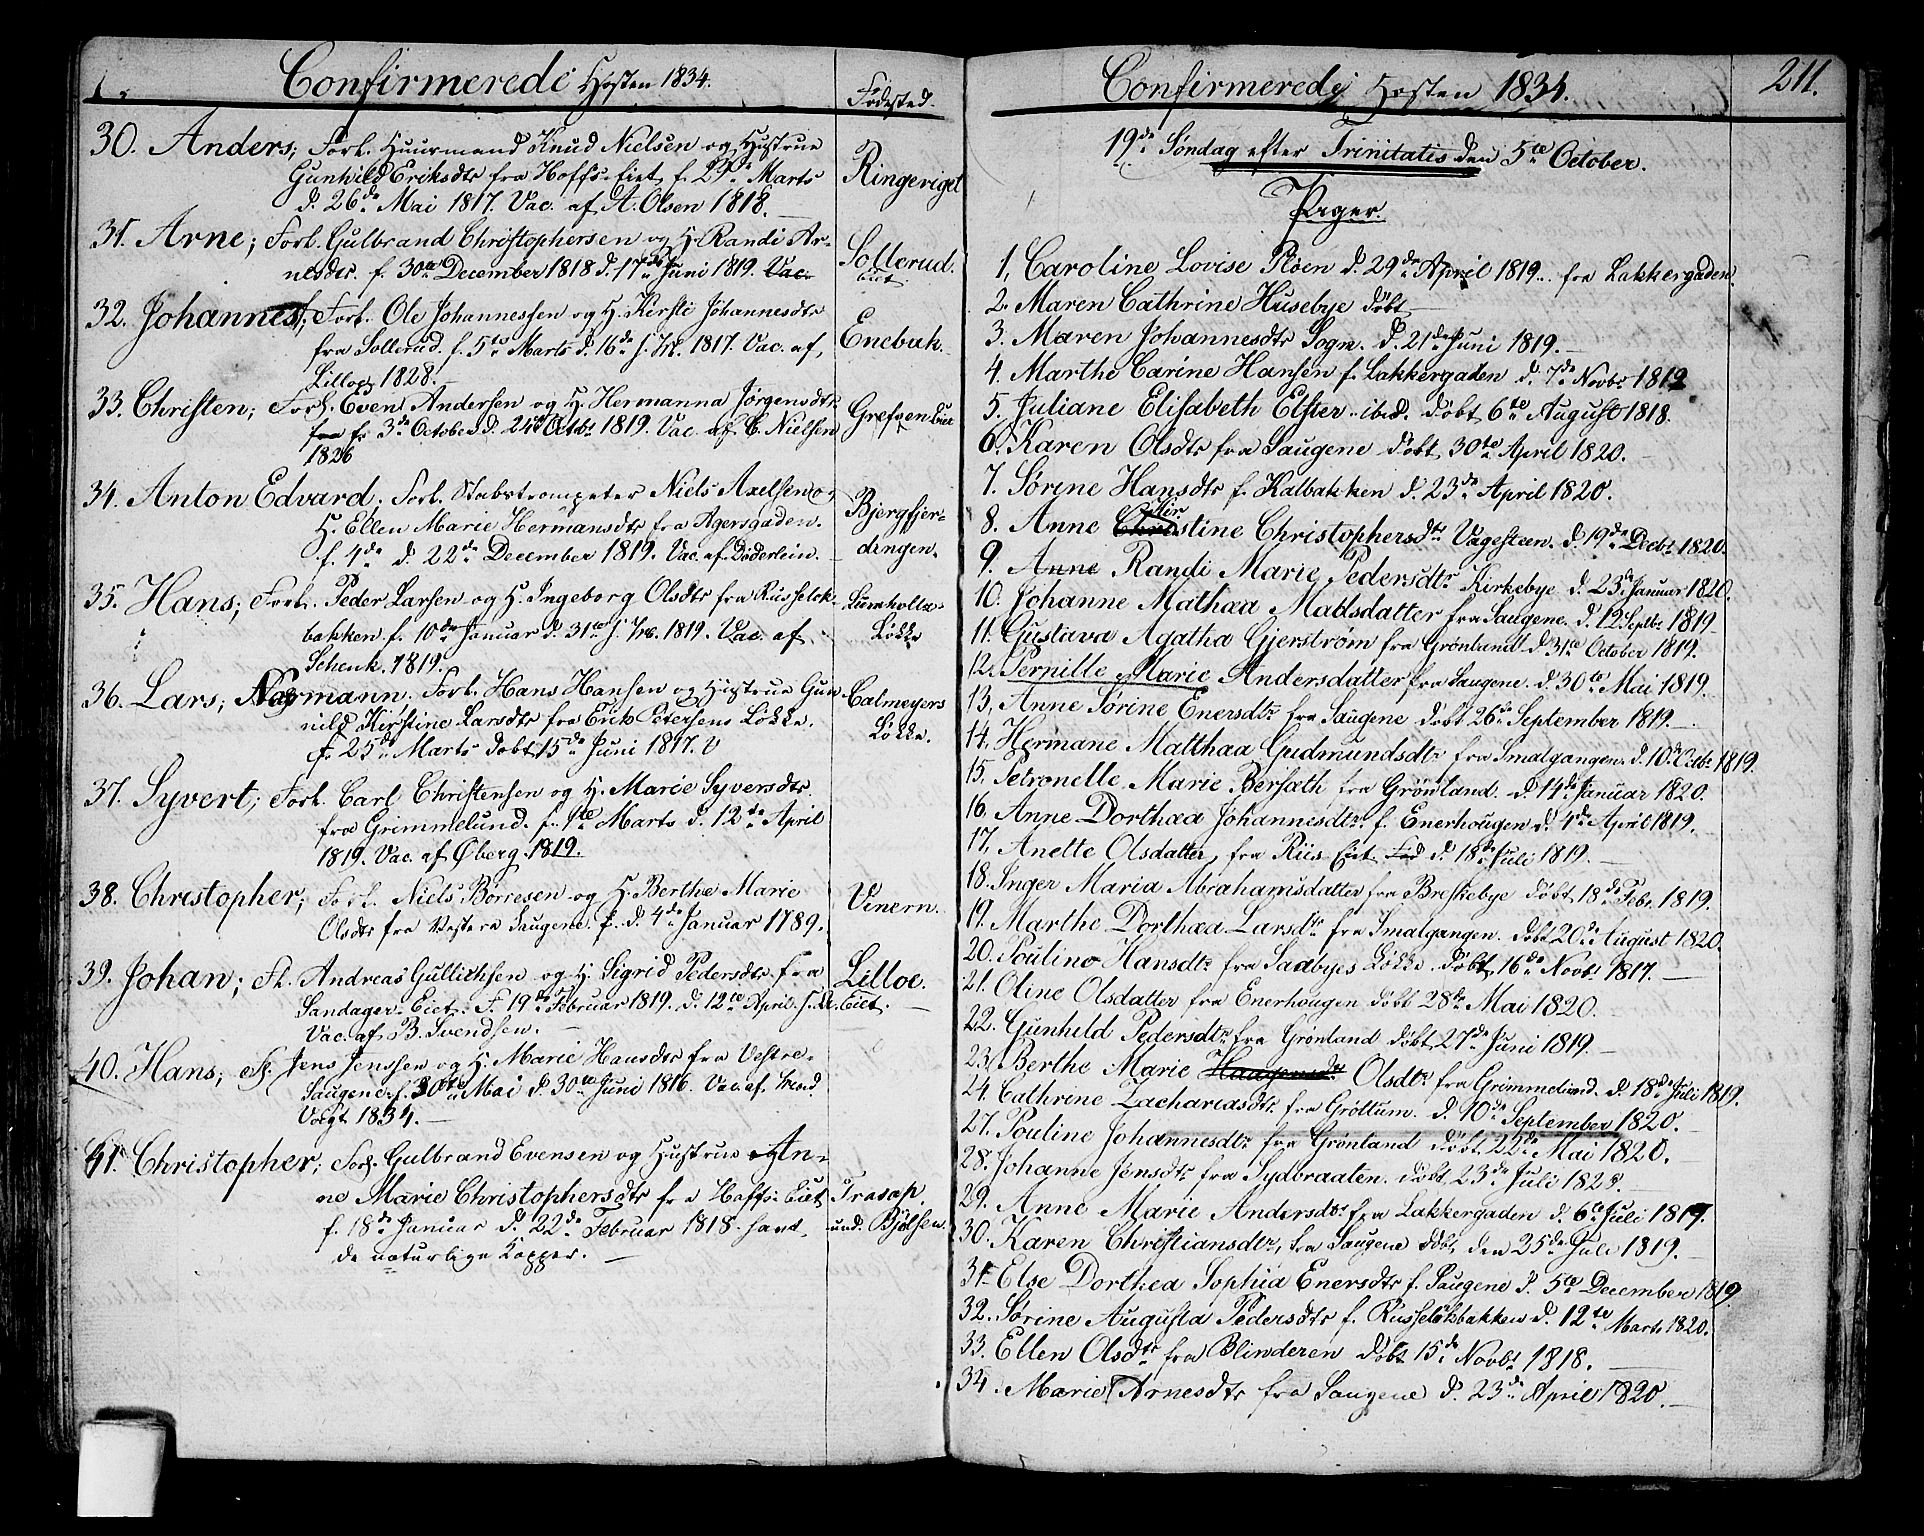 Confirmerede Høsten 1834.
Fødested.
30. Anders; Forl. Huusmand Knud Nielsen og Hustrue
Gunhild Eriksdtr fra Hoffs-Eiet f. 29de Marts
d. 26de Mai 1817. Vac. af A. Olsen 1818.
Ringeriget
31. Arne; Forl. Gulbrand Christophersen og H. Randi Ar-
nesdtr. f. 30te December 1818 d. 17de Juni 1819. Vac.
Sollerud.
Eiet.
32. Johannes; Forl. Ole Johannessen og H. Kirsti Johannesdtr
fra Sollerud. f. 5te Marts d. 16de s. M. 1817. Vac. af
Lilloe 1828.
Enebak.
33. Christen; Forl. Even Andersen og H. Hermanna Jørgensdtr
fra f. 3de October d. 24de Octbr 1819. Vac. af C. Nielsen
1826
Grefsen Eiet
34. Anton Edvard; Forl. Stabstrompeter Niels Axelsen o.
H. Ellen Marie Hermansdtr fra Agersgaden.
f. 4de d. 22de December 1819. Vac. af Døderlein.
Bjergfjer-
dingen.
35. Hans; Forl. Peder Larsen og H. Ingeborg Olsdtr fra Russeløk-
bakken f. 10de Januar d. 31te s. M. 1819. Vac. af
Schenk. 1819.
Løkke
36. Lars; Normann. Forl. Hans Hansen og Hustrue Gun-
nild Kirstine Larsdtr fra Erik Petersens Løkke.
f. 25de Marts døbt 15de Juni 1817. V
Calmeyers
Løkke.
37. Syvert; Forl. Carl Christensen og H. Marie Syversdtr
fra Grimmelund. f. 1te Marts d. 12te April
1819. Vac. af Øberg. 1819.
38. Christopher; Forl. Niels Børresen og H. Berthe Marie
Olsdtr fra Vestere Saugene. f. d. 4de Januar 1789.
Vinern.
39. Johan; Fl. Andreas Gullichsen og H. Sigrid Pedersdtr fra
Sandager-Eiet. f. 19de Februar 1819. d. 12te April s. A.
Vac. af B. Svendsen.
Lilloe.
Eiet.
40. Hans; Fl. Jens Jenssen og H. Marie Hansdtr fra Vestre-
Saugene f. 30te Mai d. 30te Juni 1816. Vac. af
Vogt 1834.
41. Christopher; Forl. Gulbrand Evensen og Hustrue An-
ne Marie Christophersdtr fra Hoffs-Eiet
f. 18de Januar d. 22de Februar 1818. havt
de naturlige Kopper.
Traaep.
und. Bjølsen.
Confirmerede Høsten 1834.
211.
19de Søndag efter Trinitatis den 5te October.
Piger.
1. Caroline Lovise Pløen d. 29de April 1819. fra Lakkergaden.
2. Maren Cathrine Husebye døbt
3. Maren Johannesdtr Sogn. d. 21de Juni 1819.
4. Marthe Carine Hansen f. Lakkergaden d. 7de Novbr 1819
5. Juliane Elisabeth Elster ibid. døbt 6te August 1818.
6. Karen Olsdtr fra Saugene døbt 30te April 1820.
7. Sørine Hansdtr f. Kalbakken d. 23de April 1820.
8. Anne Christine Kir Christophersdtr Vagesteen. d. 19de Decbr 1820.
9. Anne Randi Marie Pedersdtr Kirkebye d. 23de Januar 1820.
10. Johanne Mathæa Madsdatter fra Saugene. d. 12 Septbr 1819
11. Gustava Agatha Gjerstrøm fra Grønland d. 31te October 1819.
12. Pernille Marie Andersdatter fra Saugene. d. 30te Mai 1819.
13. Anne Sørine Enersdtr fra Saugene døbt 26de September 1819.
14. Hermane Matthæa Gudmundsdtr fra Smalgangen. d. 10de Octbr 1819.
15. Petronelle Marie Bersath fra Grønland. d. 14de Januar 1820.
16. Anne Dorthæa Johannesdtr. f. Enerhougen d. 4de April 1819.
17. Anette Olsdatter, fra Riis Eiet. Fød d. 18de Juli 1819.
18. Inger Maria Abrahamsdatter fra Breskebye døbt 18de Febr. 1819.
19. Marthe Dorthæa Larsdtr fra Smalgangen. døbt 20de August 1820.
20. Pouline Hansdtr fra Saabyes Løkke. døbt 16de Novbr 1817.
21. Oline Olsdatter fra Enerhougen døbt 28de Mai 1820.
22. Gunhild Pedersdtr fra Grønland døbt 27de Juni 1819.
23. Berthe Marie Haagensdtr Olsdtr fra Grimmelund. d. 18de Juli 1819.
24. Cathrine Zachariasdtr. fra Grøttum. d. 10de September 1820.
27. Pouline Johannesdtr fra Grønland døbt 22de Mai 1820.
28. Johanne Jensdtr fra Sydbraaten. døbt 23de Juli 1821.
29. Anne Marie Andersdtr fra Lakkergaden d. 6te Juli 1819.
30. Karen Christiansdtr, fra Saugene døbt den 25de Juli 1819.
31. Else Dorthea Sophia Enersdtr f. Saugene d. 5te December 1819.
32. Sørine Augusta Pedersdtr f. Russeløksbakken d. 12te Marts 1820.
33. Ellen Olsdtr fra Blinderen døbt 15de Novbr 1818.
34. Marie Arnesdtr fra Saugene d. 23de April 1820.